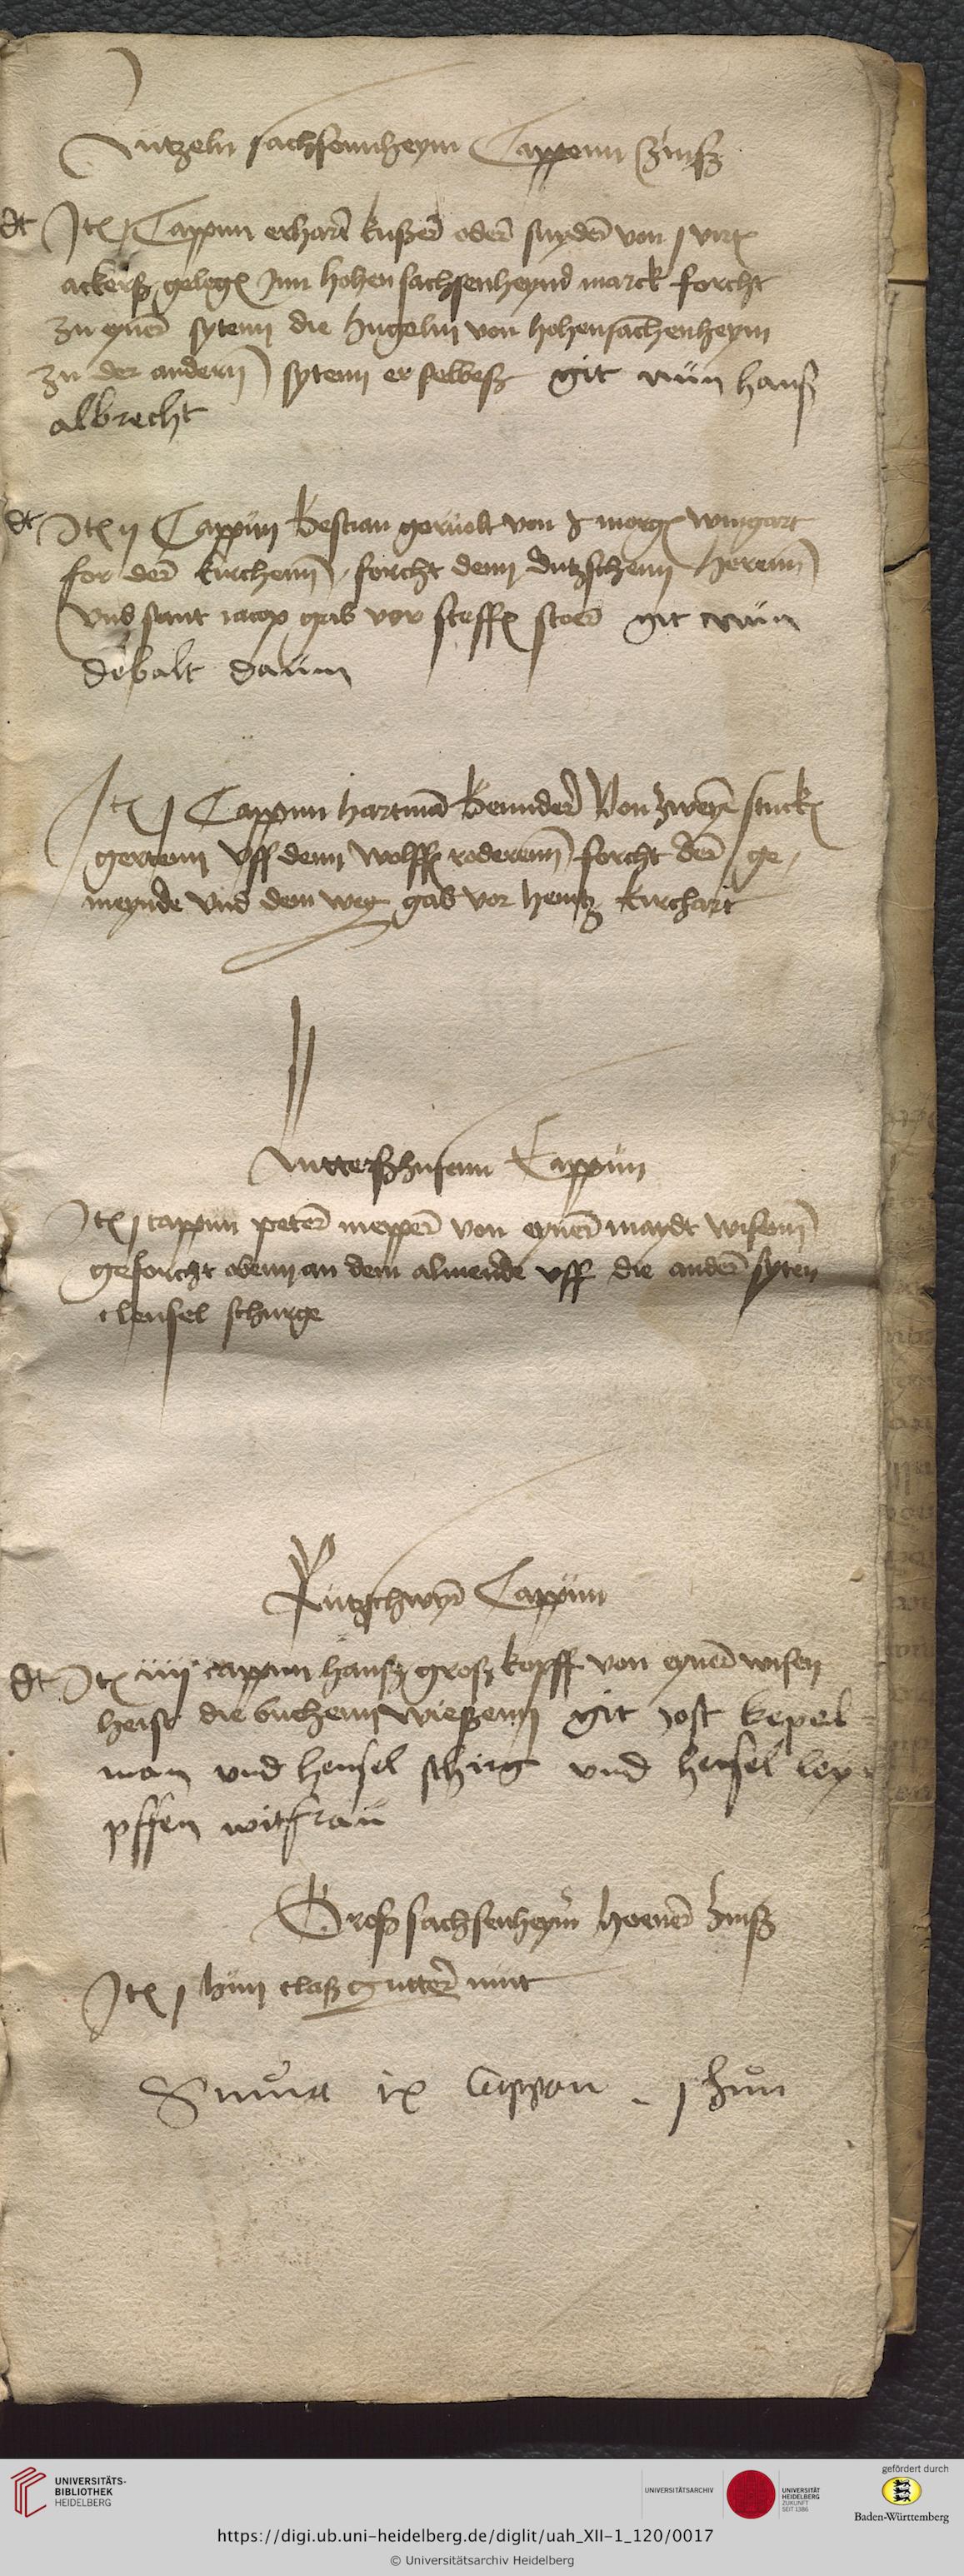 Lutzeln sachssennheym Cappenn Zinß
dt Jtem j Cappun erhart kußer oder snyder von j virt
ackerß gelegen jnn hohensachsenheymer marck forcht
zu eyner sytenn die hugelin von hohensachenheym
zu der andern sytenn er selbeß git nün hanß
albrecht
dt Jtem ij Cappun Bestian von j morgen wingart
for der kirchenn forcht denn dutzschenn herenn
vnd sant jacop gab vor steffen git nün
debalt daüm
Jtem j Cappun hartman Bennder Von zweyen stucken
gertenn Vff denn wolffs roderenn forcht der ge
meynde vnd dem weg gab vor heintz kirchart
Littersshusenn Cappün
Jtem j cappun peter von eyner wisenn
geforcht obenn an dem almende vff die ander syten
clensel schurge
Lützschwyr Cappün
dt Jtem iiij cappun hanß groß kopff von eyner wisen
heist die buchenn wießenn git jost kepel
man vnd hensel schirg vnd hensel ley
pffen witfraü
Groß sachsenheym hoener Zinß
Jtem j hün claß gutter nüt
Summa ix Cappon . j hůn
UNIVERSITÄTS-
BIBLIOTHEK
HEIDELBERG
UNIVERSITÄTSARCHIV
UNIVERSITÄT
HEIDELBERG
ZUKUNFT
SEIT 1386
gefördert durch
Baden-Württemberg
https://digi.ub.uni-heidelberg.de/diglit/uah_XII-1_120/0017
© Universitätsarchiv Heidelberg